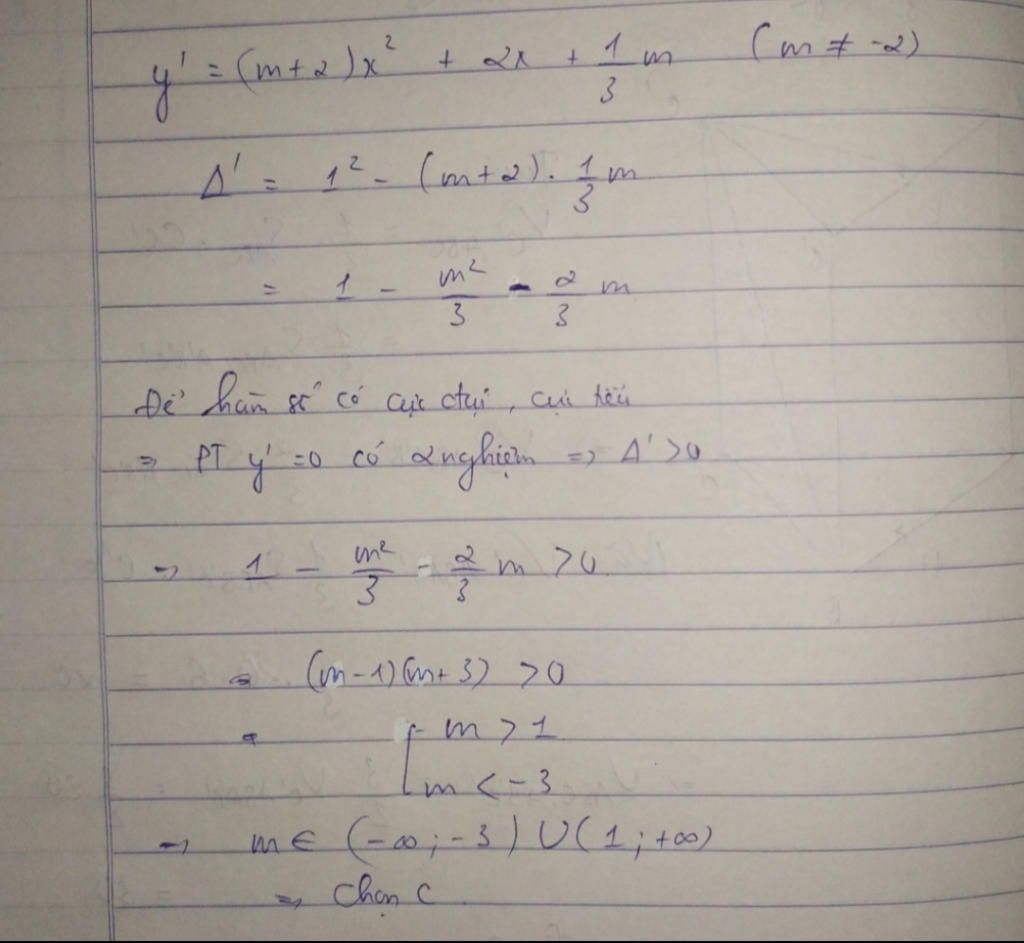 y' = (m+2)x² + 2x + 1/3 m (m ≠ -2)
Δ' = 1² - (m+2). 1/3 m
= 1 - m²/3 - 2/3 m
Để hàm số có cực đại, cực tiểu
⇒ PT y' = 0 có 2 nghiệm ⇒ Δ' > 0
⇒ 1 - m²/3 - 2/3 m > 0
⇒ (m-1)(m+3) > 0
⇒ [ m > 1
m < -3
⇒ m ∈ (-∞; -3) ∪ (1; +∞)
⇒ Chọn C.